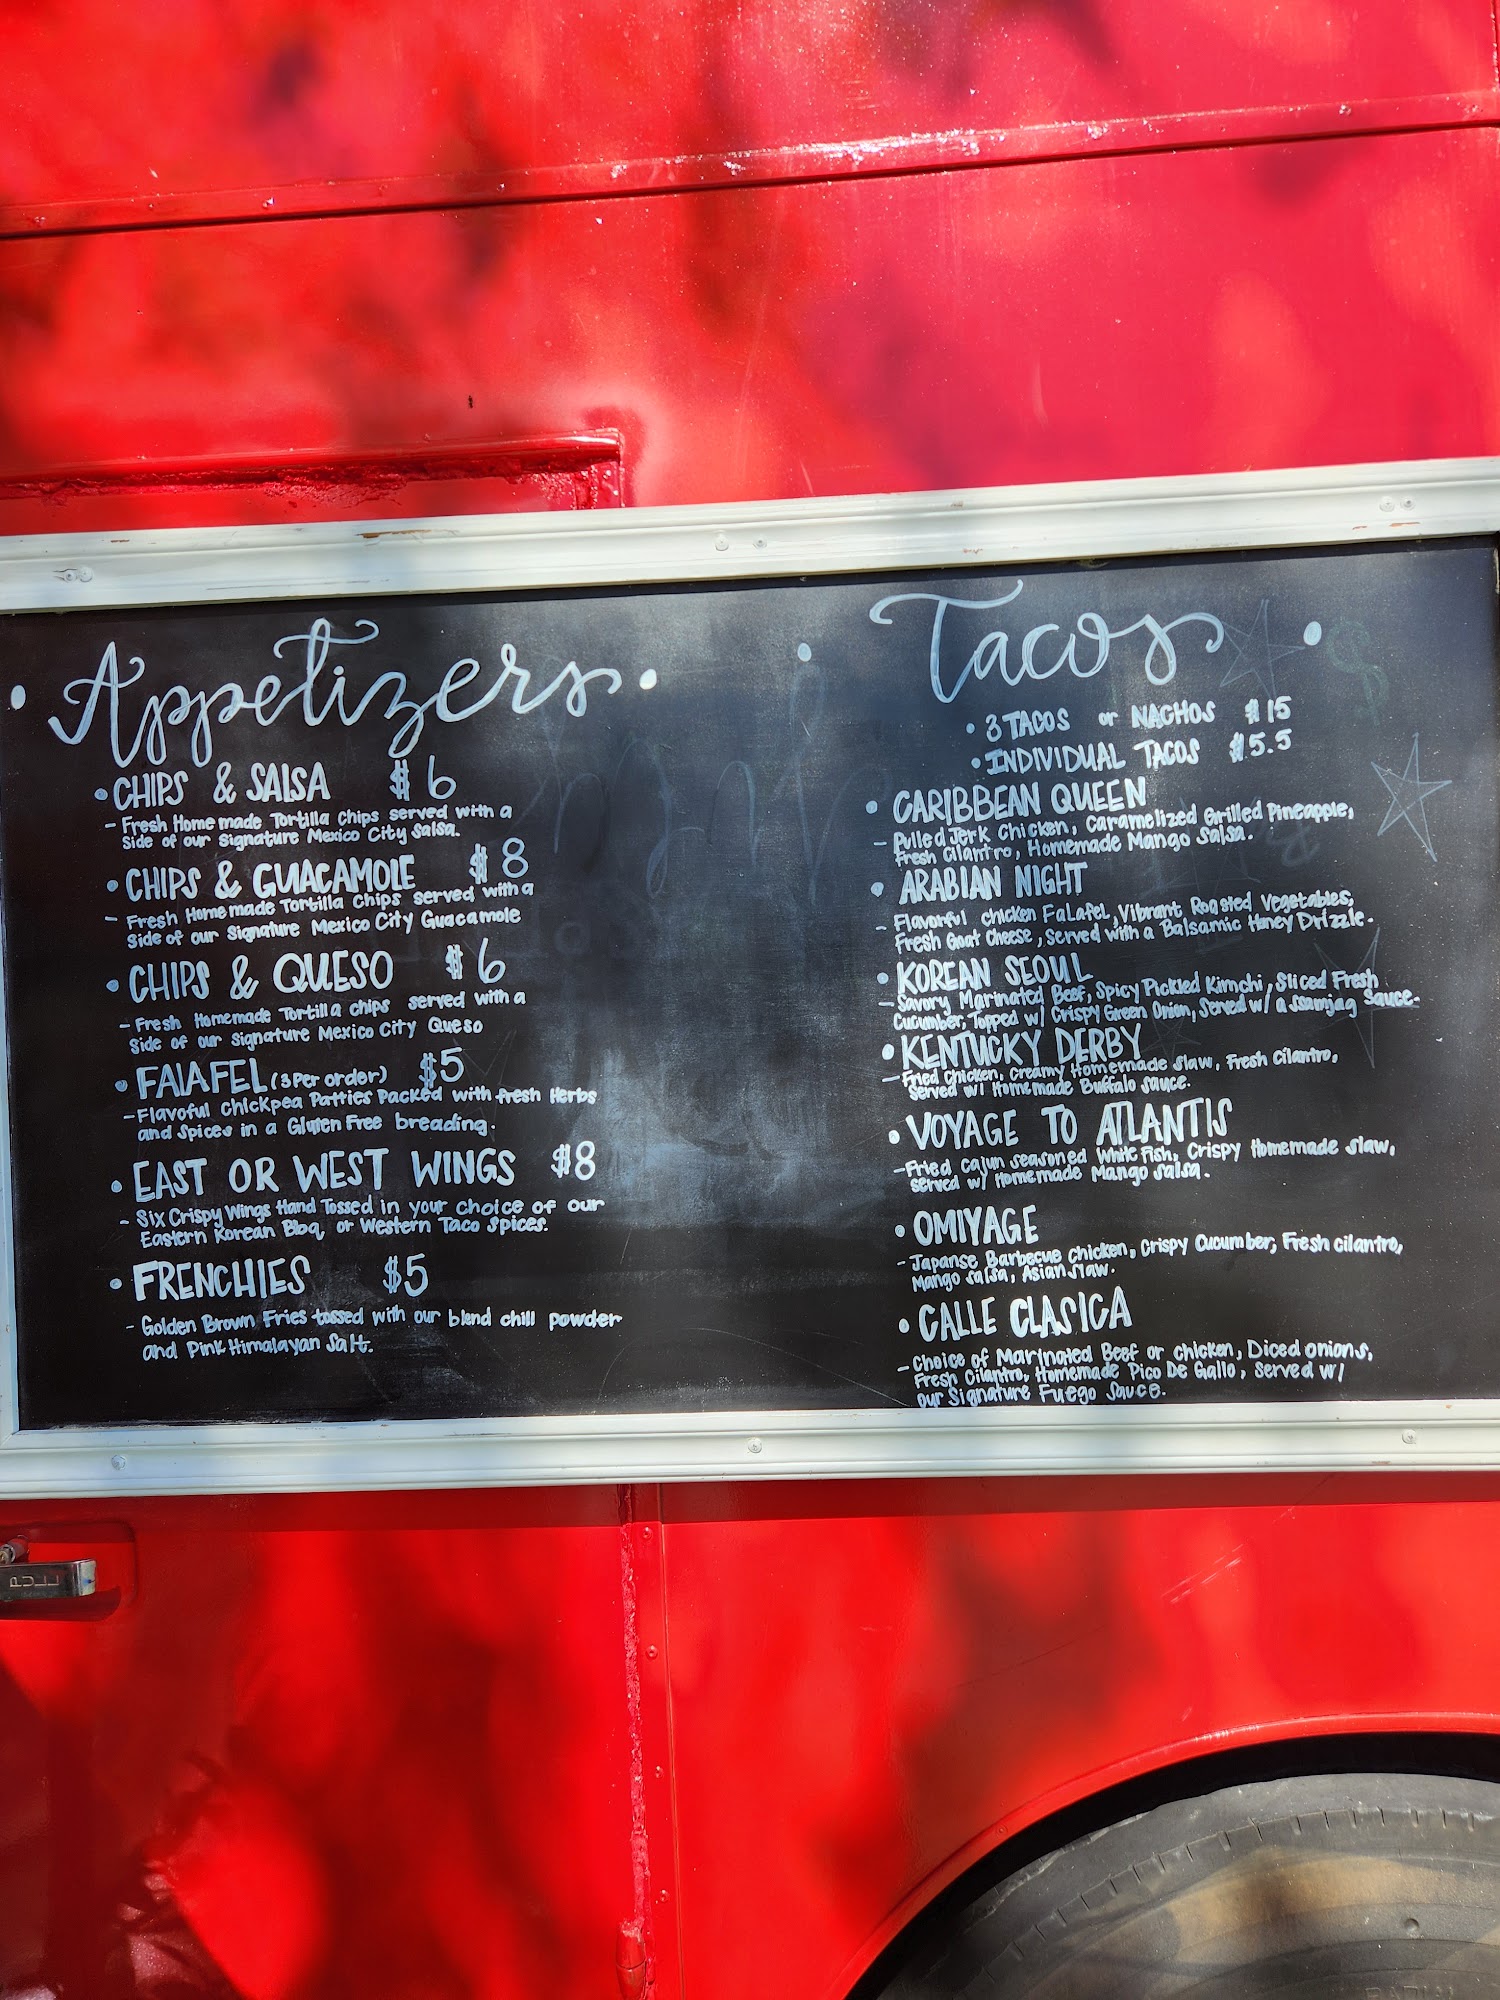 Appetizers
• CHIPS & SALSA $6
- Fresh Homemade Tortilla Chips served with a
side of our signature Mexico City Salsa.
• CHIPS & GUACAMOLE $8
- Fresh Homemade Tortilla Chips served with a
side of our signature Mexico City Guacamole
• CHIPS & QUESO $6
- Fresh Homemade Tortilla chips served with a
side of our signature Mexico City Queso
• FALAFEL (3 Per order) $5
- Flavoful chickpea Patties Packed with fresh Herbs
and spices in a Gluten Free breading.
• EAST OR WEST WINGS $8
- Six Crispy Wings Hand Tossed in your choice of our
Eastern Korean Bbq, or Western Taco Spices.
• FRENCHIES $5
- Golden Brown Fries tossed with our blend chili powder
and Pink Himalayan Salt.
Tacos
• 3 TACOS or NACHOS $15
• INDIVIDUAL TACOS $5.5
• CARIBBEAN QUEEN
- Pulled Jerk Chicken, Caramelized Grilled Pineapple,
Fresh Cilantro, Homemade Mango Salsa.
• ARABIAN NIGHT
- Flavorful chicken Falafel, Vibrant Roasted Vegetables,
Fresh Goat Cheese, Served with a Balsamic Honey Drizzle.
• KOREAN SEOUL
- Savory Marinated Beef, Spicy Pickled Kimchi, Sliced Fresh
Cucumber, Topped w/ Crispy Green Onion, Served w/ a ssamjag Sauce.
• KENTUCKY DERBY
- Fried Chicken, Creamy Homemade Slaw, Fresh Cilantro,
Served w/ Homemade Buffalo sauce.
• VOYAGE TO ATLANTIS
- Fried cajun seasoned White Fish, Crispy Homemade slaw,
served w/ Homemade Mango salsa.
• OMIYAGE
- Japanse Barbecue Chicken, Crispy Cucumber, Fresh cilantro,
Mango salsa, Asian slaw.
• CALLE CLASICA
- Choice of Marinated Beef or chicken, Diced onions,
Fresh Cilantro, Homemade Pico De Gallo, Served w/
our Signature Fuego Sauce.
PULL